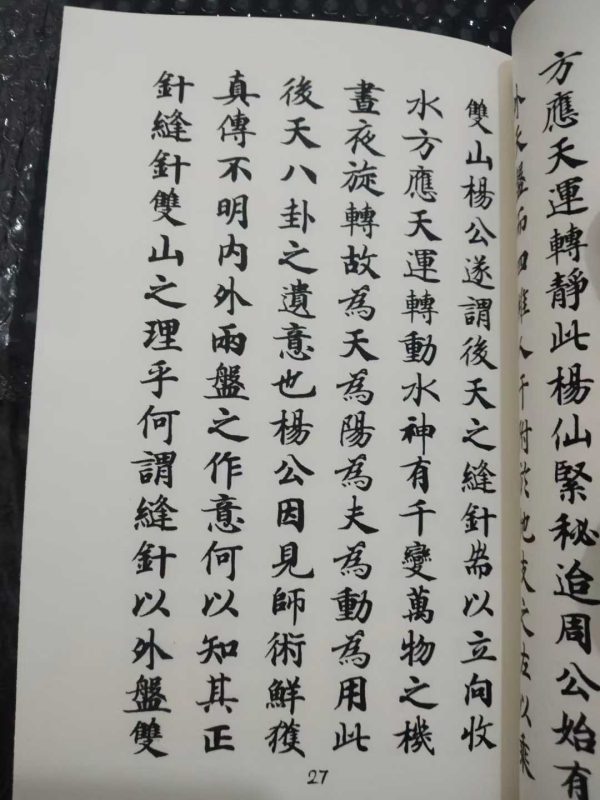 方應天運轉靜此楊仙緊秘迨周公始有
外天盤而四維八干附於地支之左以乘
雙山楊公遂謂後天之縫針耑以立向收
水方應天運轉動水神有千變萬物之機
晝夜旋轉故為天為陽為夫為動為用此
後天八卦之遺意也楊公因見師術鮮獲
真傳不明內外兩盤之作意何以知其正
針縫針雙山之理乎何謂縫針以外盤雙
27